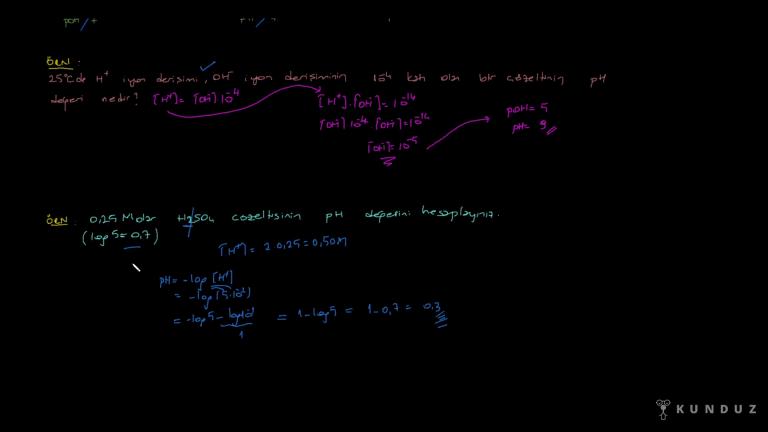 ÖRN :
25°C de H⁺ iyon derişimi, OH⁻ iyon derişiminin 10⁻⁴ katı olan bir çözeltinin pH
değeri nedir? [H⁺] = [OH⁻] 10⁻⁴
[H⁺].[OH⁻] = 10⁻¹⁴
[OH⁻] 10⁻⁴.[OH⁻] = 10⁻¹⁴
[OH⁻] = 10⁻⁵
pOH = 5
pH = 9
ÖRN : 0,25 Molar H2SO4 çözeltisinin pH değerini hesaplayınız.
(log5 = 0,7)
[H⁺] = 2.0,25 = 0,50M
pH = -log [H⁺]
= -log [5.10⁻¹]
= -log5 - log10⁻¹ = 1-log5 = 1-0,7 = 0,3
1
KUNDUZ